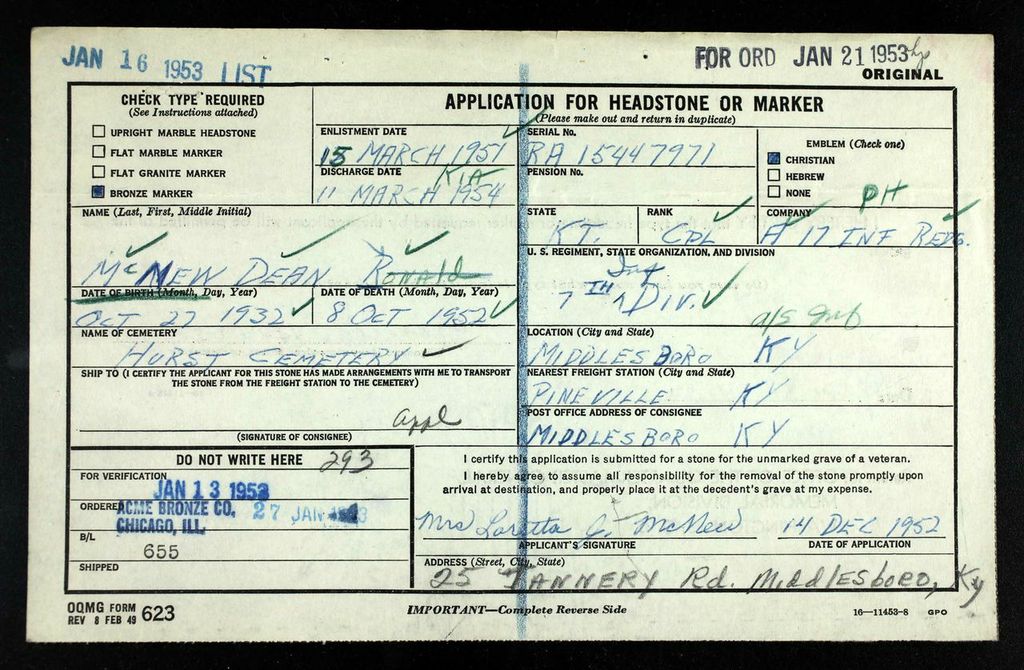 JAN 16 1953 LIST
FOR ORD JAN 21 1953
ORIGINAL
CHECK TYPE REQUIRED
(See Instructions attached)
UPRIGHT MARBLE HEADSTONE
FLAT MARBLE MARKER
FLAT GRANITE MARKER
BRONZE MARKER
APPLICATION FOR HEADSTONE OR MARKER
(Please make out and return in duplicate)
ENLISTMENT DATE
15 MARCH 1951
DISCHARGE DATE
KIA
11 MARCH 1954
SERIAL No.
RA 15447971
PENSION No.
EMBLEM (Check one)
CHRISTIAN
HEBREW
NONE
PH
NAME (Last, First, Middle Initial)
McNEW DEAN RONALD
STATE
KY.
RANK
CPL
COMPANY
A 17 INF REPG.
U. S. REGIMENT, STATE ORGANIZATION, AND DIVISION
Inf
7 TH 7 DIV.
DATE OF BIRTH (Month, Day, Year)
OCT 27 1932
DATE OF DEATH (Month, Day, Year)
8 OCT 1952
NAME OF CEMETERY
HURST CEMETERY
LOCATION (City and State)
MIDDLESBORO KY
SHIP TO (I CERTIFY THE APPLICANT FOR THIS STONE HAS MADE ARRANGEMENTS WITH ME TO TRANSPORT THE STONE FROM THE FREIGHT STATION TO THE CEMETERY)
appl
(SIGNATURE OF CONSIGNEE)
NEAREST FREIGHT STATION (City and State)
PINEVILLE KY
POST OFFICE ADDRESS OF CONSIGNEE
MIDDLESBORO KY
DO NOT WRITE HERE 293
FOR VERIFICATION
JAN 13 1953
ORDERED
ACME BRONZE CO.
CHICAGO, ILL.
27 JAN
B/L
655
SHIPPED
I certify this application is submitted for a stone for the unmarked grave of a veteran.
I hereby agree to assume all responsibility for the removal of the stone promptly upon
arrival at destination, and properly place it at the decedent's grave at my expense.
Mrs Loretta C. McNew 14 DEC 1952
APPLICANT'S SIGNATURE DATE OF APPLICATION
ADDRESS (Street, City, State)
25 TANNERY Rd. Middlesboro, Ky
OQMG FORM
REV 8 FEB 49 623
IMPORTANT—Complete Reverse Side
16—11453-8 GPO